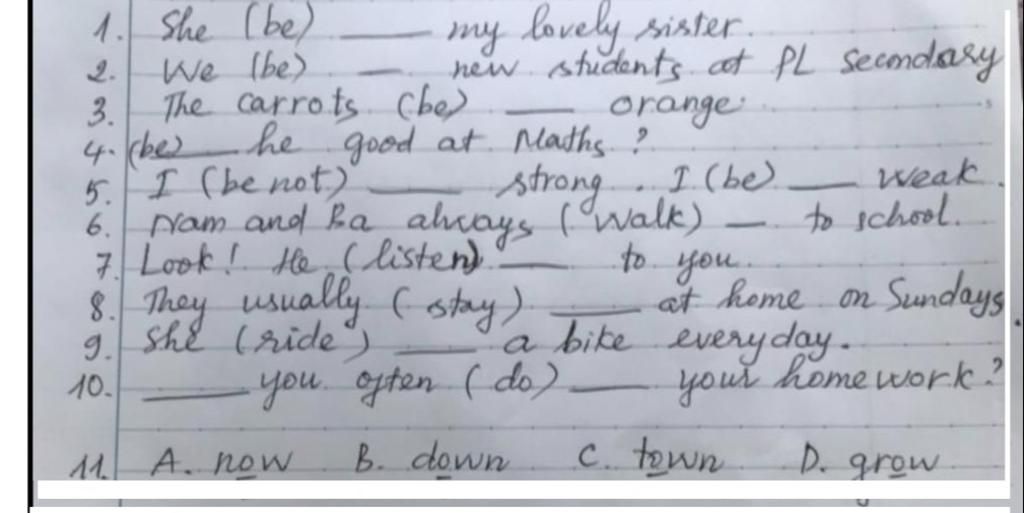 1. She (be) ____ my lovely sister.
2. We (be) __ new students at PL secondary
3. The carrots (be) ___ orange.
4. (be) ___ he good at Maths?
5. I (be not) ____ strong. I (be) ___ weak.
6. Nam and Ba always (walk) __ to school.
7. Look! He (listen) ___ to you.
8. They usually (stay) ____ at home on Sundays.
9. She (ride) ____ a bike everyday.
10. _____ you often (do) ____ your homework?
11. A. now B. down C. town D. grow